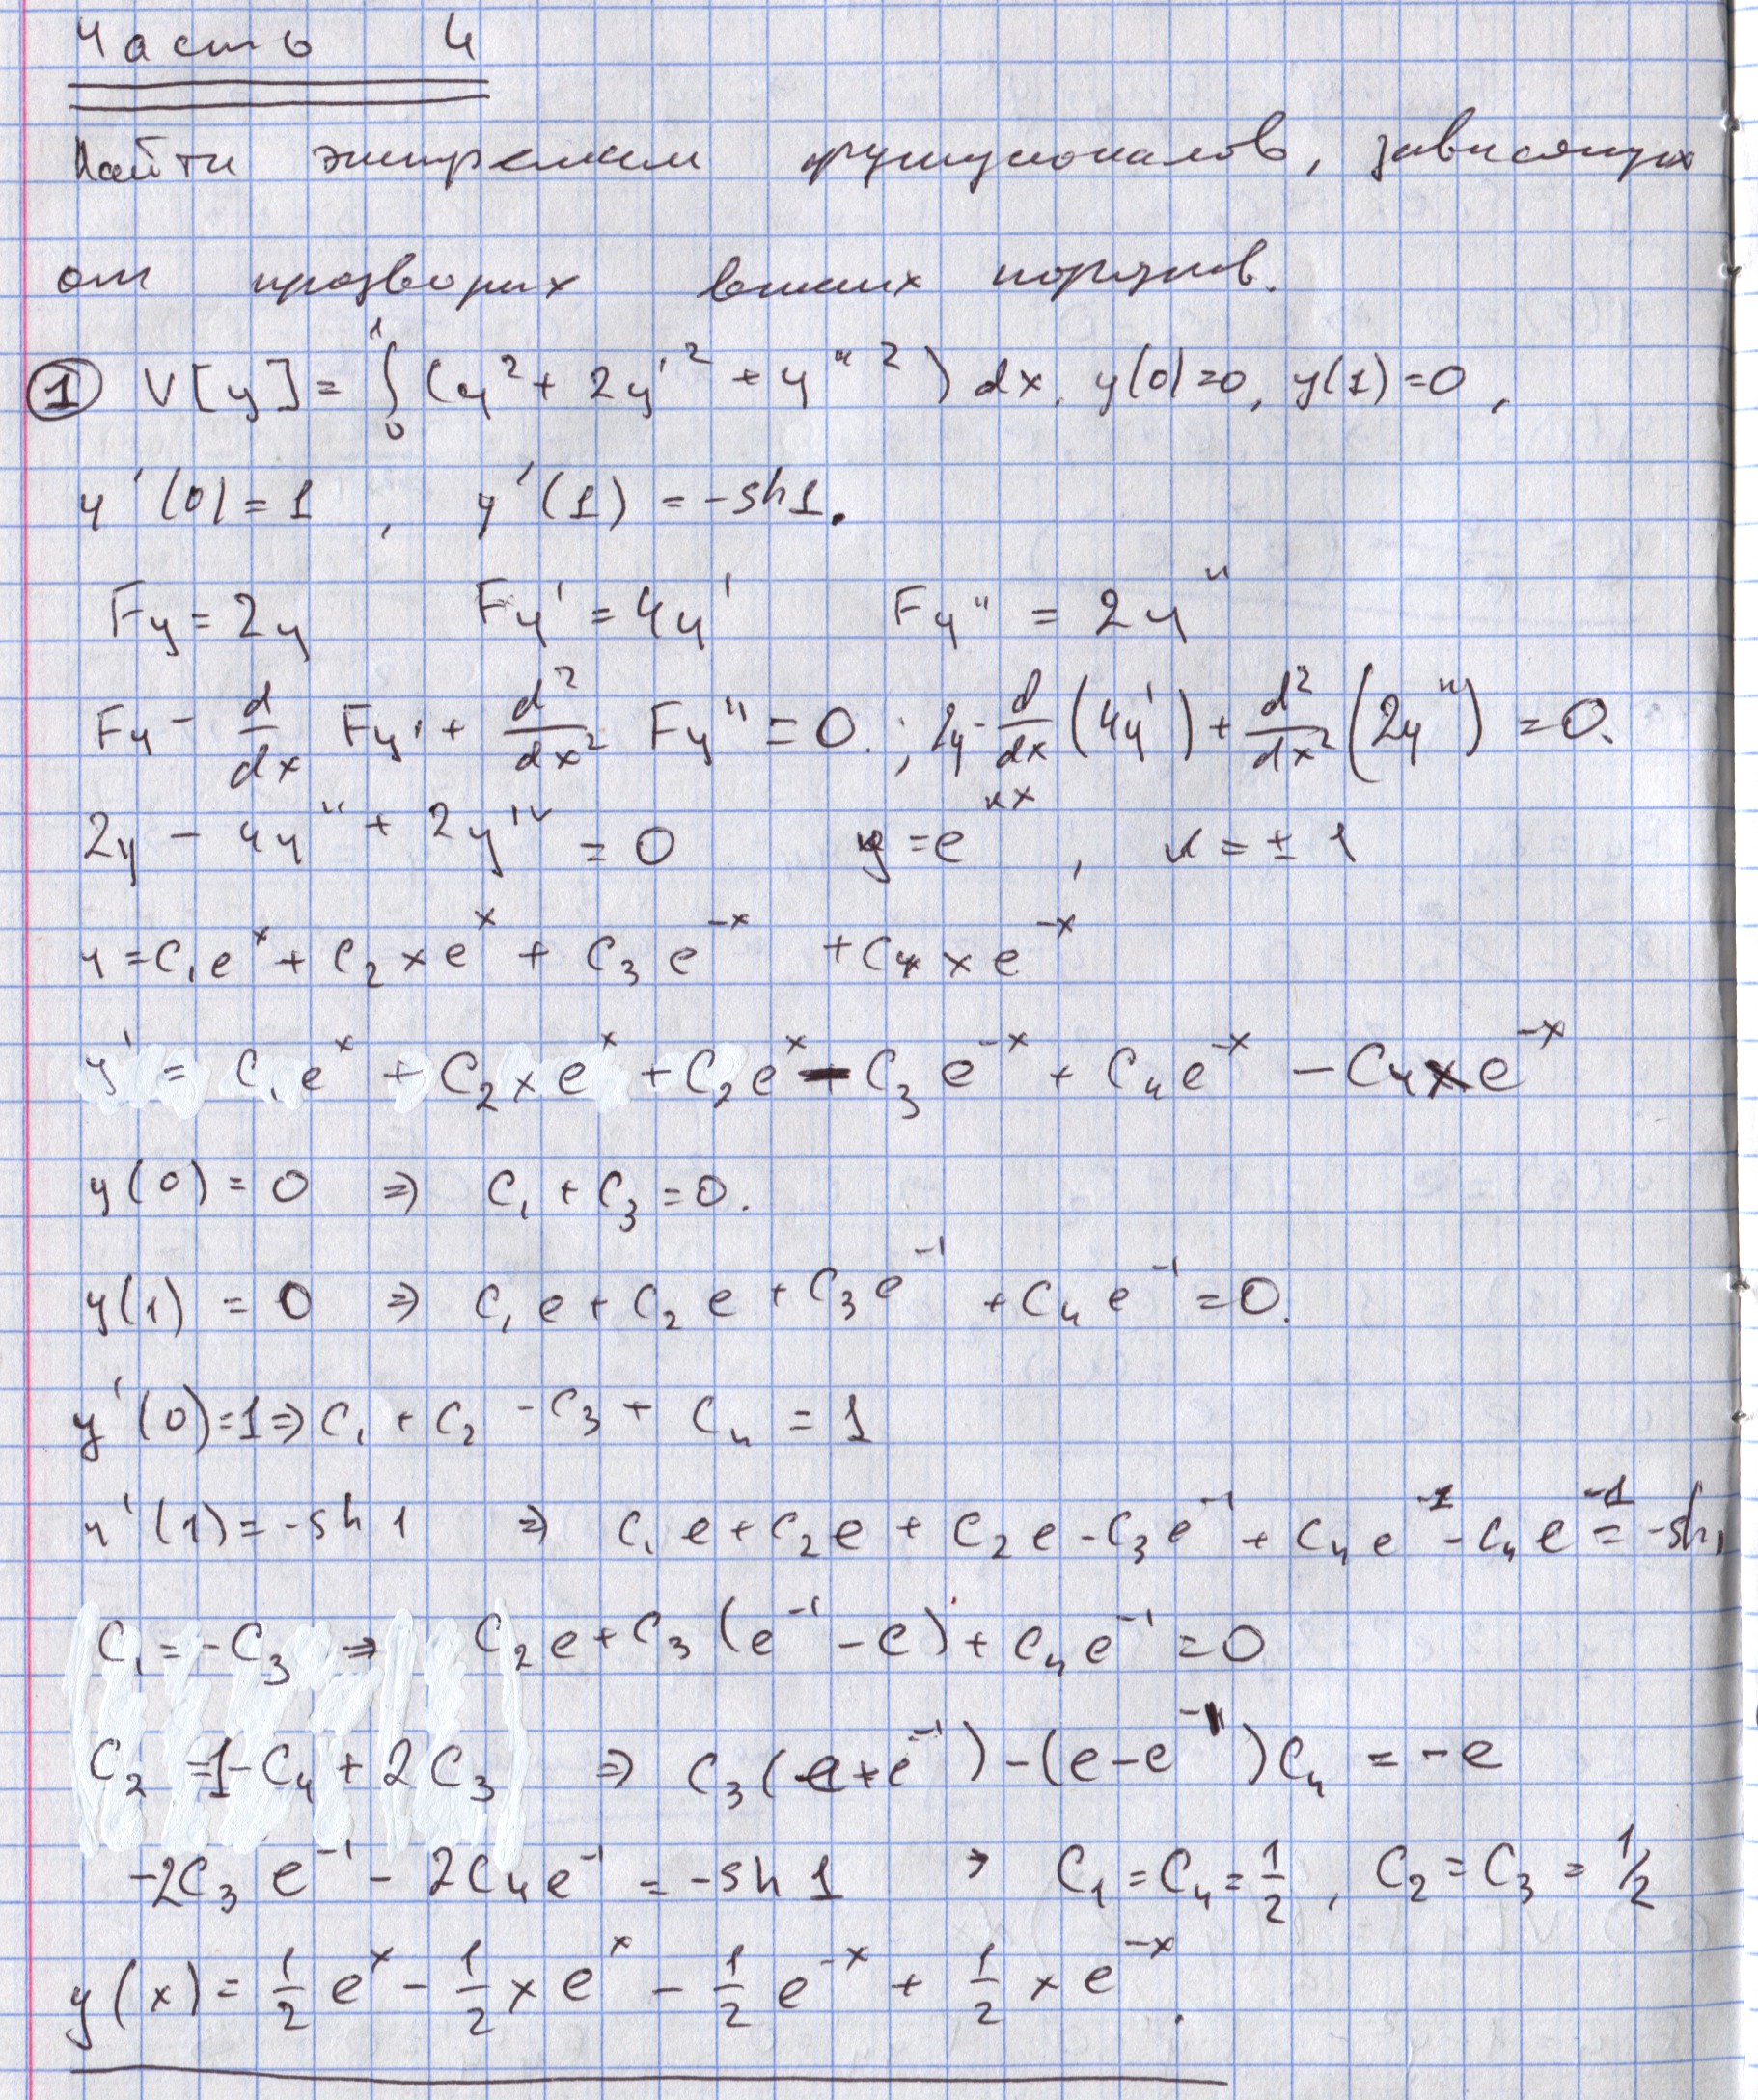 Часть 4
Найти экстремали функционалов, зависящих
от произвдных высших порядков.
① V[y] = ∫₀¹ (y² + 2y'² + y''²) dx, y(0)=0, y(1)=0,
y'(0)=1, y'(1) = -sh1.
Fy = 2y Fy' = 4y' Fy'' = 2y''
Fy - d/dx Fy' + d²/dx² Fy'' = 0. ; 2y - d/dx (4y') + d²/dx² (2y'') = 0.
2y - 4y'' + 2y^{IV} = 0 y = e^{kx}, k = ± 1
y = C₁e^x + C₂xe^x + C₃e^{-x} + C₄xe^{-x}
y' = C₁e^x + C₂xe^x + C₂e^x - C₃e^{-x} + C₄e^{-x} - C₄xe^{-x}
y(0) = 0 ⇒ C₁ + C₃ = 0.
y(1) = 0 ⇒ C₁e + C₂e + C₃e^{-1} + C₄e^{-1} = 0.
y'(0)=1 ⇒ C₁ + C₂ - C₃ + C₄ = 1
y'(1) = -sh 1 ⇒ C₁e + C₂e + C₂e - C₃e^{-1} + C₄e^{-1} - C₄e^{-1} = -sh1
C₁ = -C₃ ⇒ C₂e + C₃(e^{-1} - e) + C₄e^{-1} = 0
C₂ = 1 - C₄ + 2C₃ ⇒ C₃(e + e^{-1}) - (e - e^{-1})C₄ = -e
-2C₃e^{-1} - 2C₄e^{-1} = -sh 1 → C₁ = C₄ = 1/2, C₂ = C₃ = 1/2
y(x) = 1/2 e^x - 1/2 xe^x - 1/2 e^{-x} + 1/2 xe^{-x}.